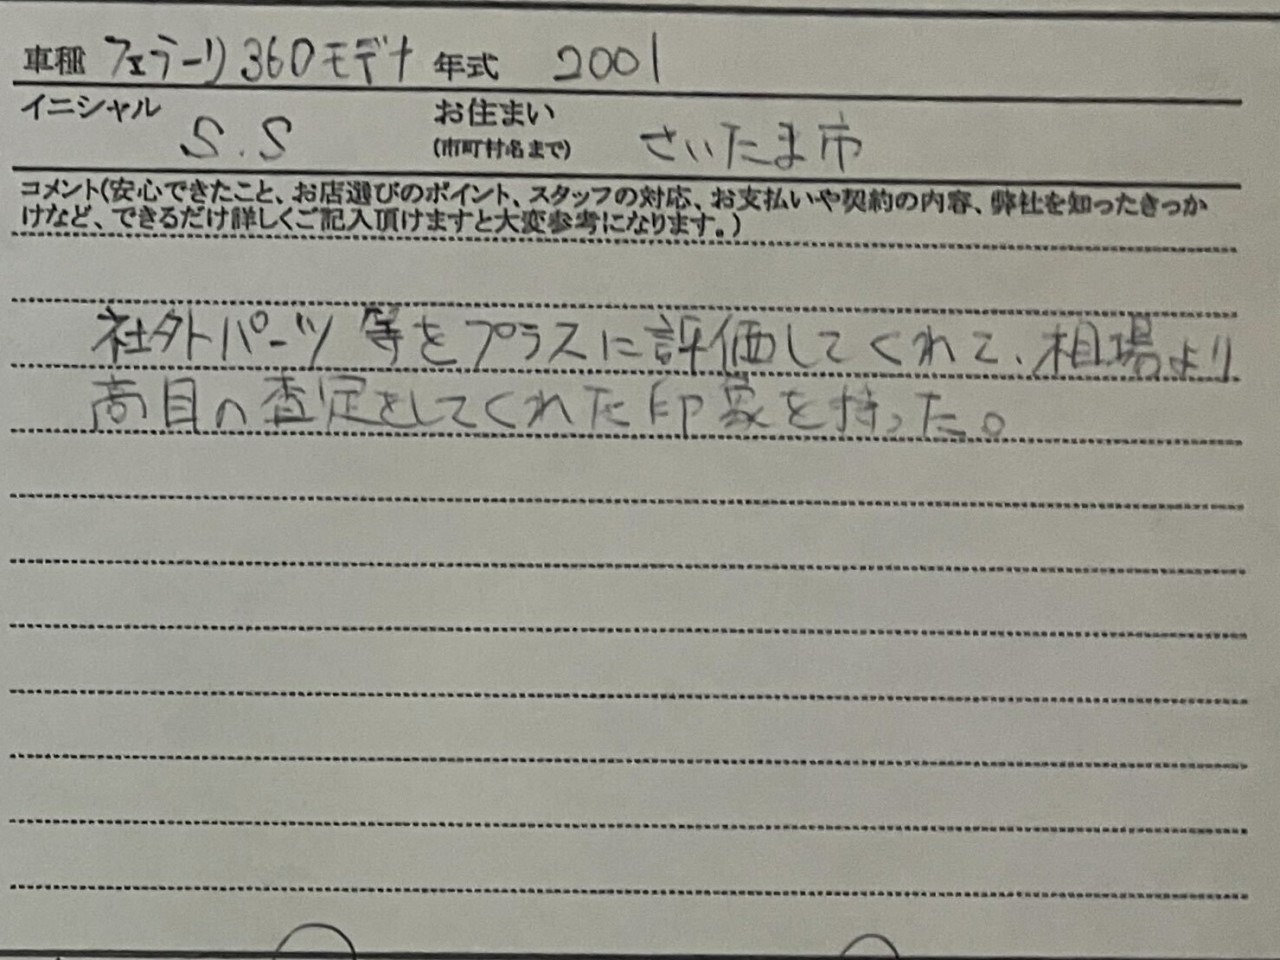 車種 フェラーリ360モデナ 年式 2001
イニシャル S.S お住まい(市町村名まで) さいたま市
コメント(安心できたこと、お店選びのポイント、スタッフの対応、お支払いや契約の内容、弊社を知ったきっか
けなど、できるだけ詳しくご記入頂けますと大変参考になります。)
社外パーツ等をプラスに評価してくれて、相場より
高目の査定をしてくれた印象を持った。